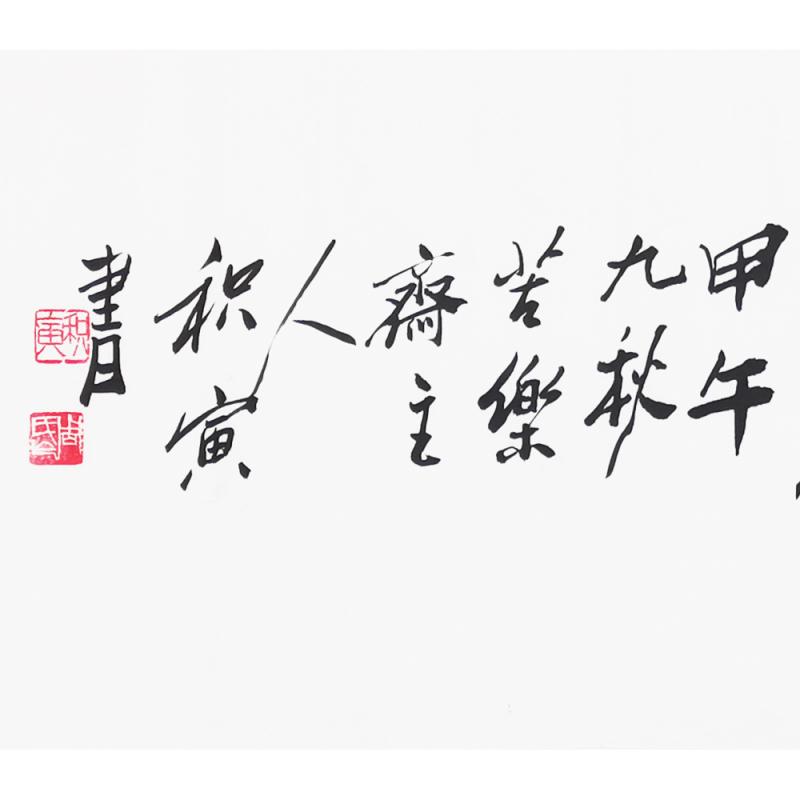 甲午
九秋
苦樂
齋主
人
积寅
書
积寅